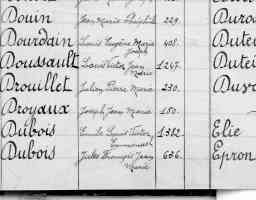 Douin Jean Marie 229.
Dourdain Louis Eugène Marie 408.
Joseph
Doussault Louis Victor Jean 1247.
Marie
Drouillet Julien Pierre Marie 230.
Droyaux Joseph Jean Marie 180.
Dubois Emile Louis Victor 1382. Elie
Emmanuel
Dubois Jules François Jean 636. Epron
Marie